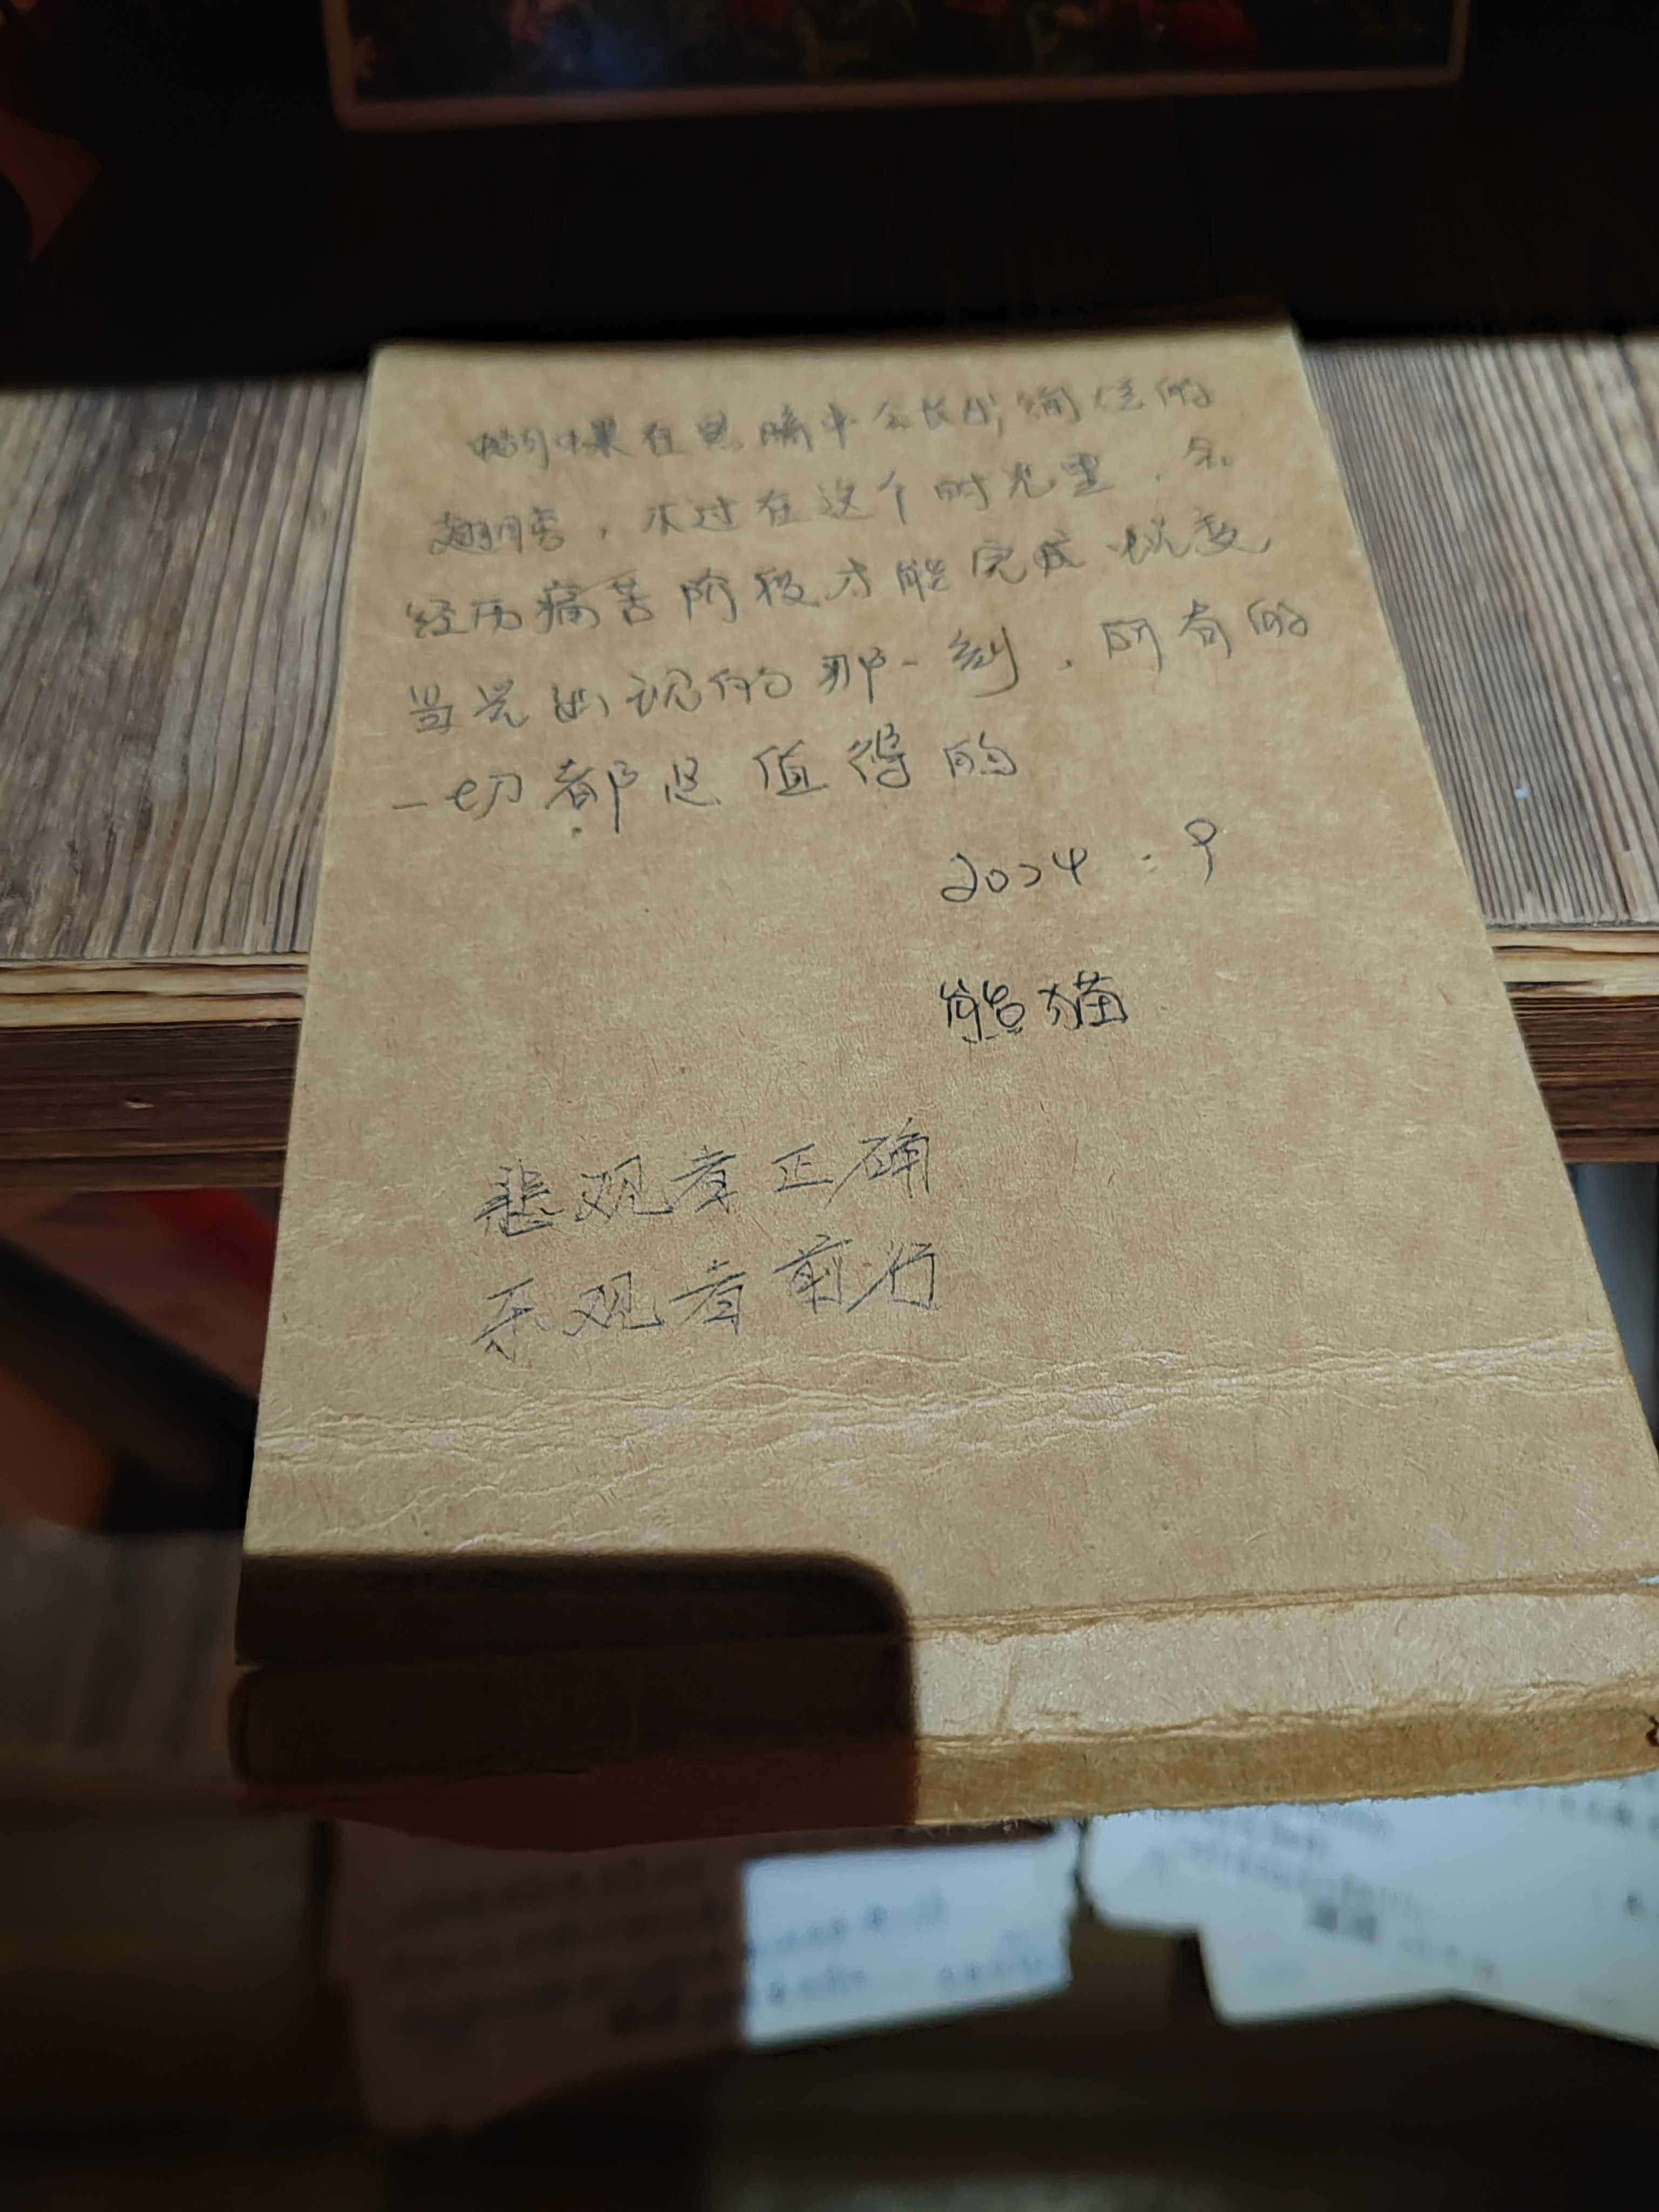 蝴蝶在黑暗中会长出绚烂的
翅膀，不过在这个时光里，会
经历痛苦阶段才能完成蜕变
当光出现的那一刻，所有的
一切都是值得的
2024 : 9
熊猫
悲观者正确
乐观者前行